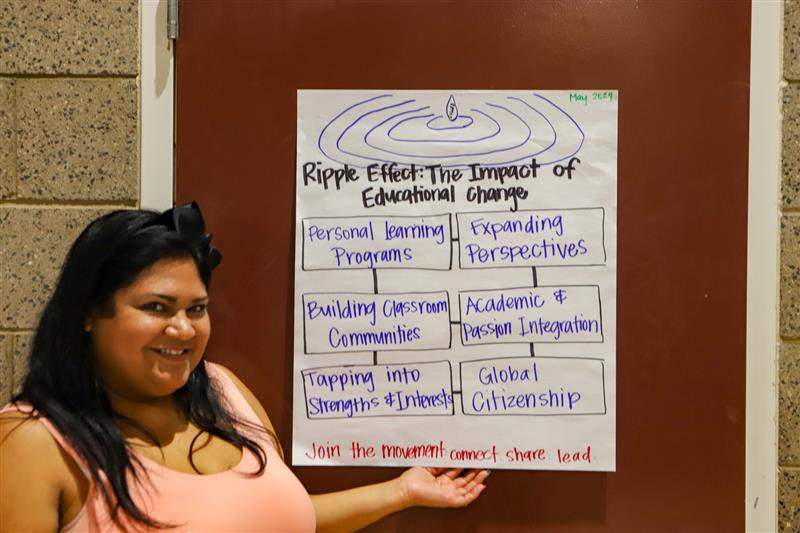 May 2024
Ripple Effect: The Impact of
Educational Change
Personal Learning
Programs
Expanding
Perspectives
Building Classroom
Communities
Academic &
Passion Integration
Tapping into
Strengths & Interests
Global
Citizenship
Join the movement. connect. share. lead.